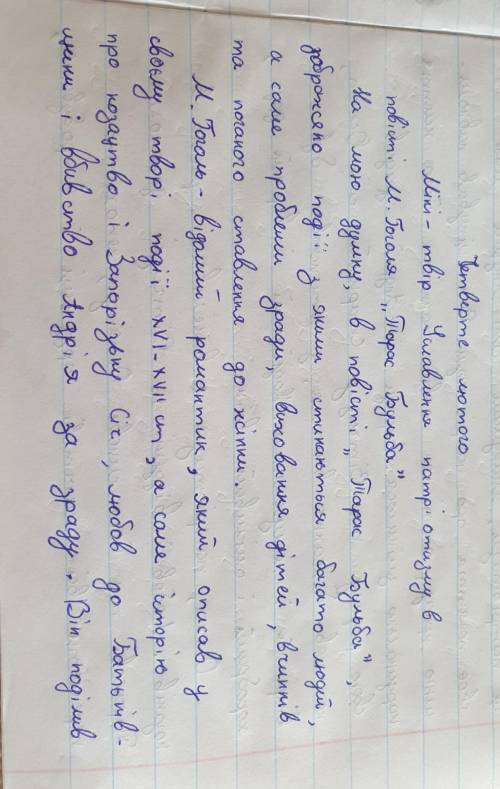 Четверте лютого
Міні - твір Уславлення патріотизму в
повісті М. Гоголя „Тарас Бульба"
На мою думку, в повісті „Тарас Бульба",
зображено події з якими стикаються багато людей,
а саме проблеми зради, виховання дітей, вчинків
та поганого ставлення до жінки.
М. Гоголь - відомий романтик, який описав у
своєму творі події XVI-XVII ст, а саме історію
про козацтво і Запорізьку Січ, любов до Батьків-
щини і вбивство Андрія за зраду. Він поділив